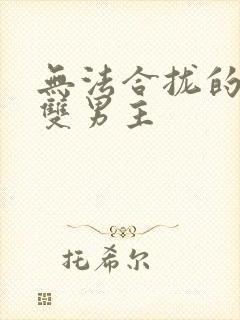 無法合拢的
雙男主
托希尔